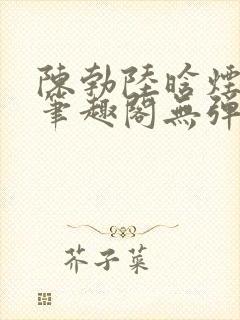 陳勃陸晗煙
筆趣閣無彈
芥子菜